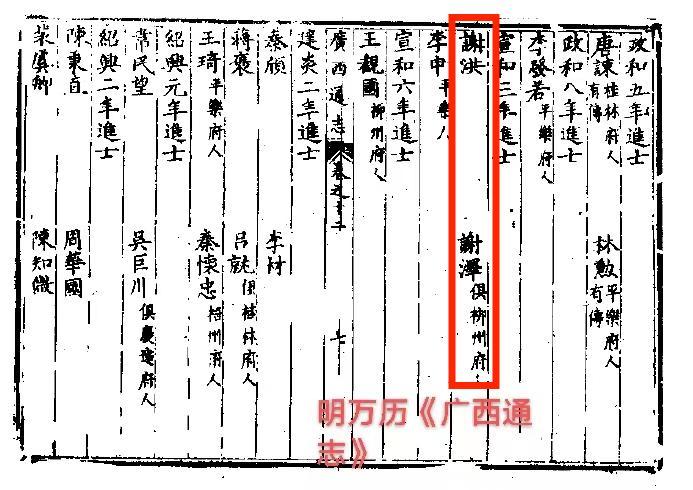 政和五年進士
唐諫桂林府人有傳 林勲平樂府人有傳
政和八年進士
李發若平樂府人
宣和三年進士
謝洪 謝澤俱柳州府
李申平樂人
宣和六年進士
王觀國柳州府人
廣西通志 卷之 七
建炎二年進士
秦頎 李材
蔣襃 呂 俱桂林府人
王琦平樂府人 秦懷忠梧州府人
紹興元年進士
常民望 吳巨川俱慶遠府人
紹興二年進士
陳東自 周華國
陳知微
明万历《广西通
志》